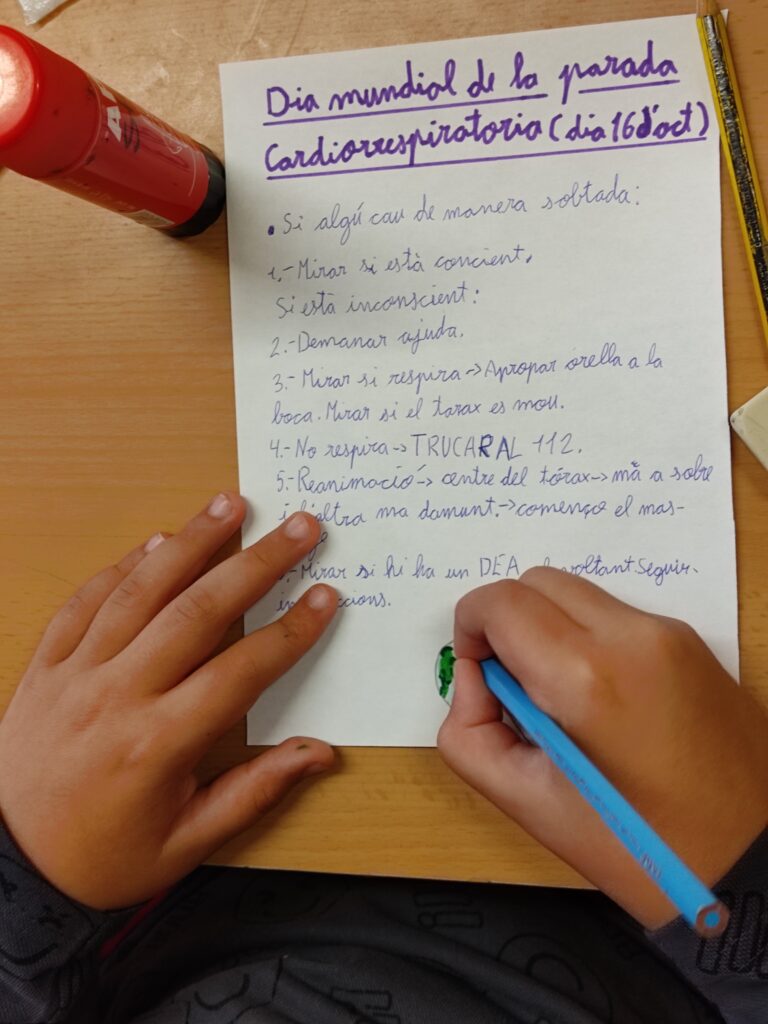 Dia mundial de la parada
Cardiorrespiratoria (dia 16 d'oct)
• Si algú cau de manera sobtada:
1.- Mirar si està concient.
Si està inconscient:
2.- Demanar ajuda.
3.- Mirar si respira -> Apropar orella a la
boca. Mirar si el torax es mou.
4.- No respira -> TRUCAR AL 112.
5.- Reanimació -> centre del tórax -> mà a sobre
i l'altra ma damunt. -> començo el mas-
.- Mirar si hi ha un DEA voltant. Seguir